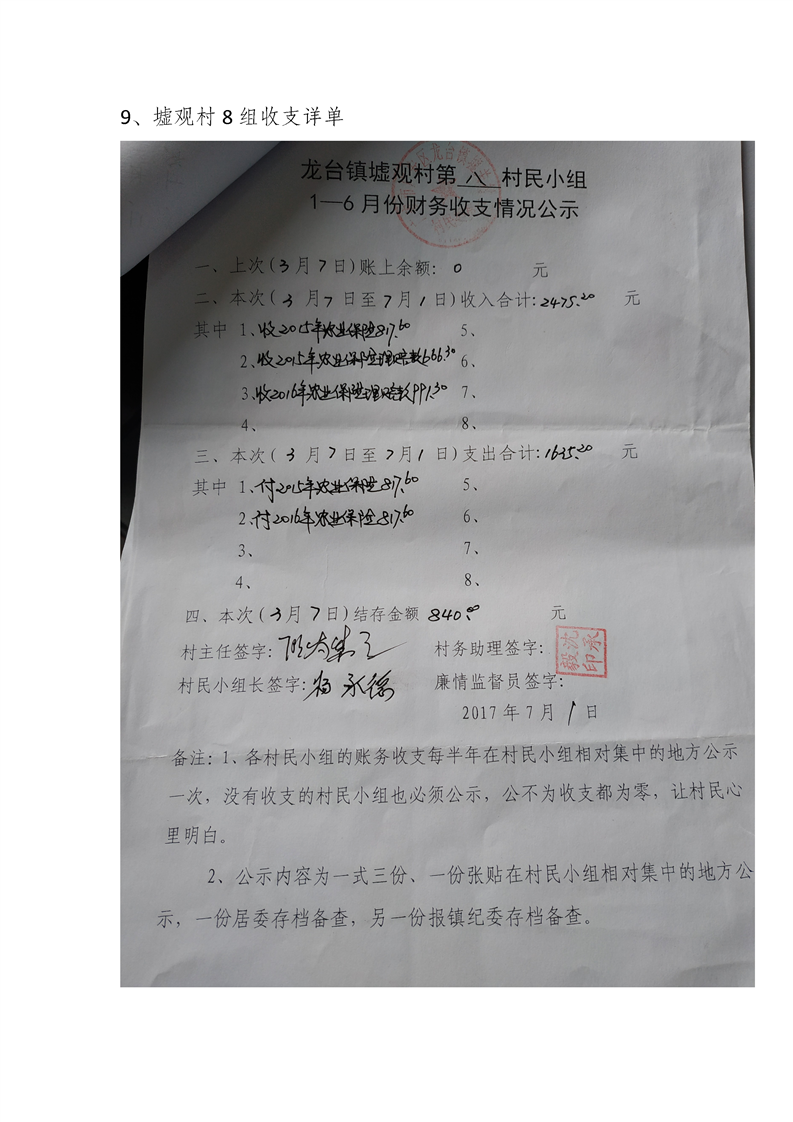 9、墟观村 8 组收支详单
龙台镇墟观村第 八 村民小组
1—6 月份财务收支情况公示
一、上次(3月7日)账上余额: 0 元
二、本次(3月7日至7月1日)收入合计:2475.20 元
其中 1、收2015年农业保险817.60 5、
2、收2015年农业保险理赔款666.30 6、
3、收2016年农业保险理赔款991.30 7、
4、 8、
三、本次(3月7日至7月1日)支出合计:1635.20 元
其中 1、付2015年农业保险817.60 5、
2、付2016年农业保险817.60 6、
3、 7、
4、 8、
四、本次(3月7日)结存金额 840.00 元
村主任签字: 村务助理签字: 沈承毅印
村民小组长签字: 永德 廉情监督员签字:
2017年7月1日
备注:1、各村民小组的账务收支每半年在村民小组相对集中的地方公示
一次,没有收支的村民小组也必须公示,公不为收支都为零,让村民心
里明白。
2、公示内容为一式三份、一份张贴在村民小组相对集中的地方公
示,一份居委存档备查,另一份报镇纪委存档备查。